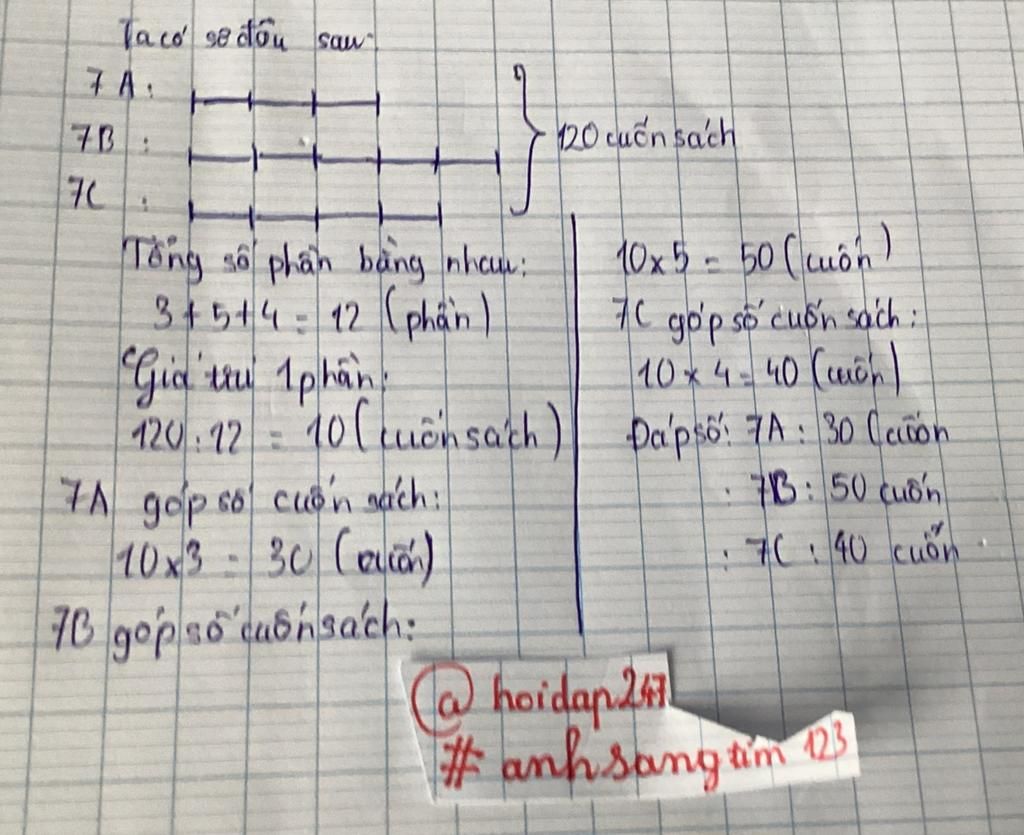 Ta có sơ đồ sau:
7A:
7B:
7C:
120 cuốn sách
Tổng số phần bằng nhau:
3+5+4=12 (phần)
Giá trị 1 phần:
120:12 = 10 (cuốn sách)
7A góp số cuốn sách:
10x3 = 30 (cuốn)
7B góp số cuốn sách:
10x5 = 50 (cuốn)
7C góp số cuốn sách:
10x4=40 (cuốn)
Đáp số: 7A: 30 (cuốn
: 7B: 50 cuốn
: 7C: 40 cuốn
@hoidap247
#anhsangtim123